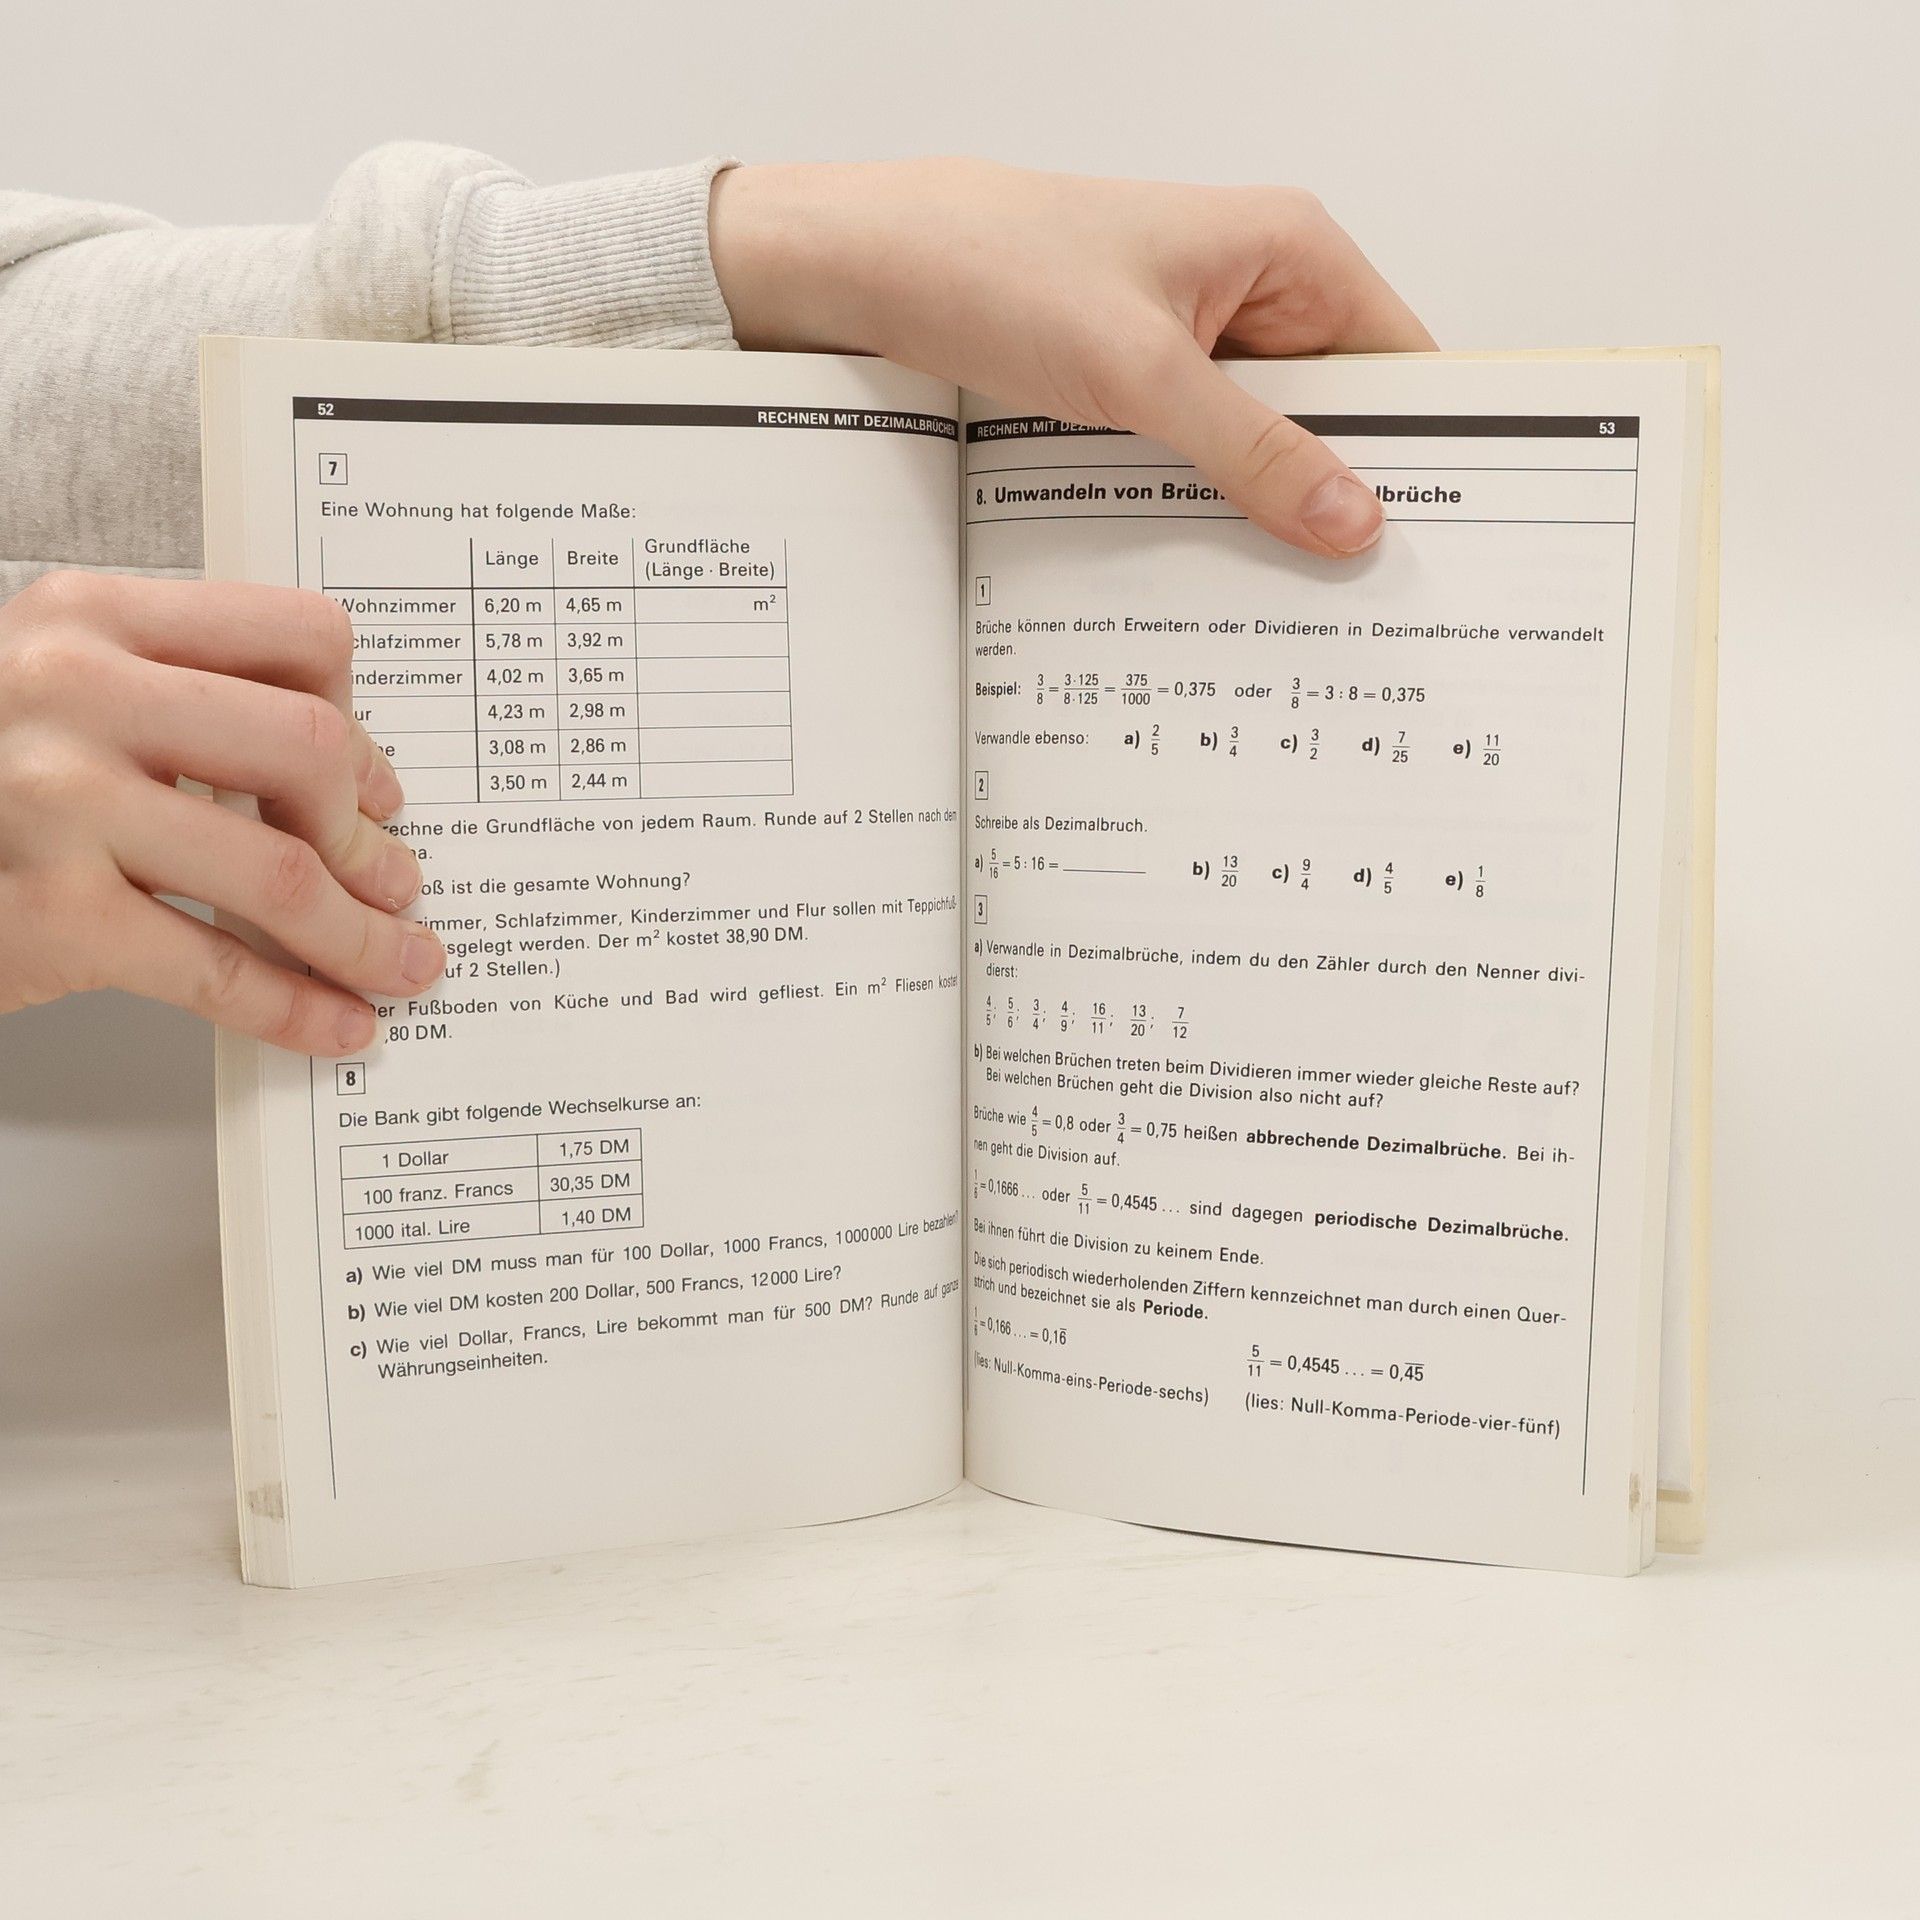 52
RECHNEN MIT DEZIMALBRÜCHEN
7
Eine Wohnung hat folgende Maße:
Länge Breite Grundfläche
(Länge · Breite)
Wohnzimmer 6,20 m 4,65 m m²
chlafzimmer 5,78 m 3,92 m
inderzimmer 4,02 m 3,65 m
ur 4,23 m 2,98 m
he 3,08 m 2,86 m
3,50 m 2,44 m
rechne die Grundfläche von jedem Raum. Runde auf 2 Stellen nach dem
ma.
oß ist die gesamte Wohnung?
zimmer, Schlafzimmer, Kinderzimmer und Flur sollen mit Teppichfuß-
sgelegt werden. Der m² kostet 38,90 DM.
uf 2 Stellen.)
er Fußboden von Küche und Bad wird gefliest. Ein m² Fliesen kostet
,80 DM.
8
Die Bank gibt folgende Wechselkurse an:
1 Dollar 1,75 DM
100 franz. Francs 30,35 DM
1000 ital. Lire 1,40 DM
a) Wie viel DM muss man für 100 Dollar, 1000 Francs, 1 000 000 Lire bezahlen?
b) Wie viel DM kosten 200 Dollar, 500 Francs, 12 000 Lire?
c) Wie viel Dollar, Francs, Lire bekommt man für 500 DM? Runde auf ganze
Währungseinheiten.
RECHNEN MIT
53
8. Umwandeln von Brüc lbrüche
1
Brüche können durch Erweitern oder Dividieren in Dezimalbrüche verwandelt
werden.
Beispiel: 3/8 = 3·125/8·125 = 375/1000 = 0,375 oder 3/8 = 3 : 8 = 0,375
Verwandle ebenso: a) 2/5 b) 3/4 c) 3/2 d) 7/25 e) 11/20
2
Schreibe als Dezimalbruch.
a) 5/16 = 5 : 16 = ________ b) 13/20 c) 9/4 d) 4/5 e) 1/8
3
a) Verwandle in Dezimalbrüche, indem du den Zähler durch den Nenner divi-
dierst:
4/5; 5/6; 3/4; 4/9; 16/11; 13/20; 7/12
b) Bei welchen Brüchen treten beim Dividieren immer wieder gleiche Reste auf?
Bei welchen Brüchen geht die Division also nicht auf?
Brüche wie 4/5 = 0,8 oder 3/4 = 0,75 heißen abbrechende Dezimalbrüche. Bei ih-
nen geht die Division auf.
1/6 = 0,1666 ... oder 5/11 = 0,4545 ... sind dagegen periodische Dezimalbrüche.
Bei ihnen führt die Division zu keinem Ende.
Die sich periodisch wiederholenden Ziffern kennzeichnet man durch einen Quer-
strich und bezeichnet sie als Periode.
1/6 = 0,166 ... = 0,16̅ 5/11 = 0,4545 ... = 0,4̅5̅
(lies: Null-Komma-eins-Periode-sechs) (lies: Null-Komma-Periode-vier-fünf)